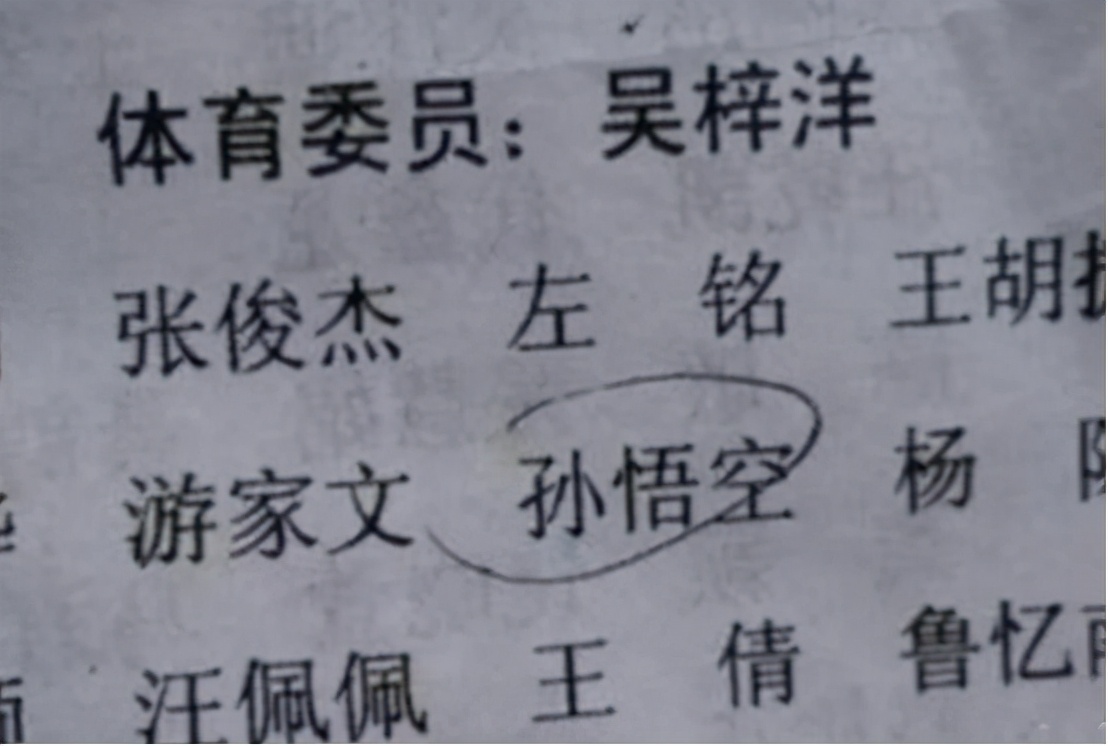 体育委员：吴梓洋
张俊杰 左 铭 王胡
游家文 孙悟空 杨
汪佩佩 王 倩 鲁忆